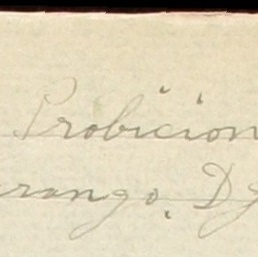 Probicion
urango, Dg